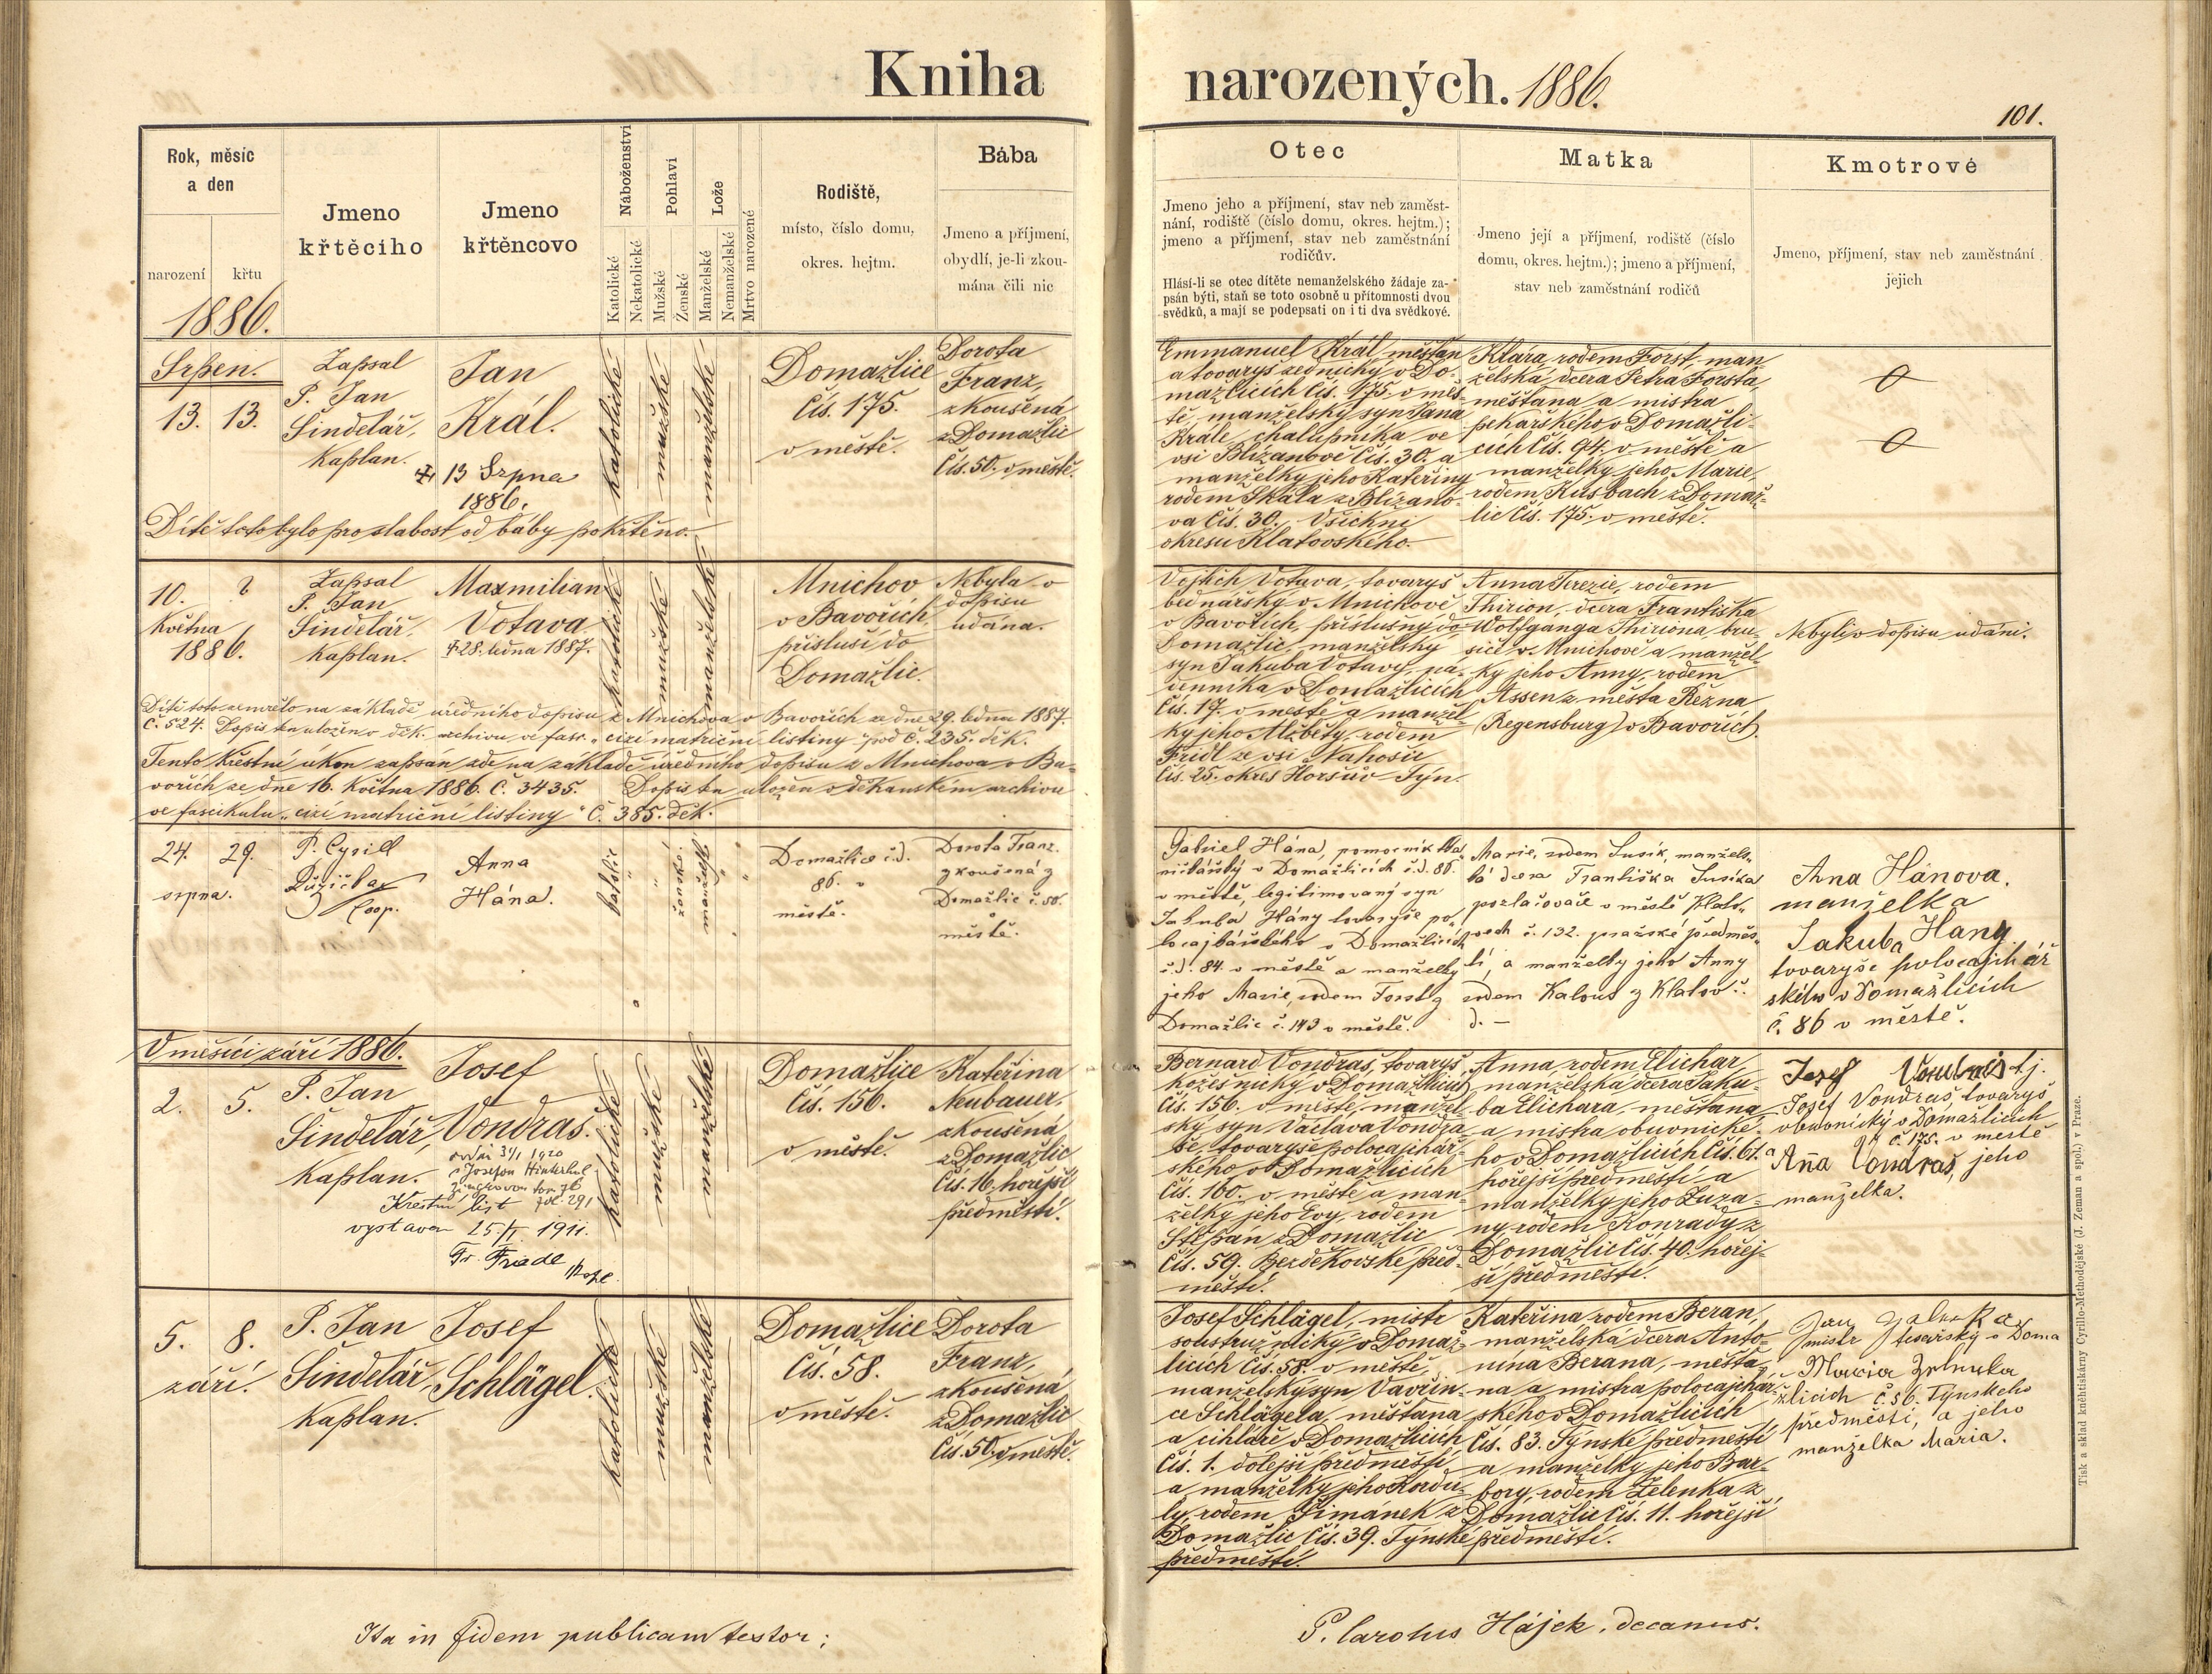 Kniha narozených. 1886.
101.
Rok, měsíc
a den
narození
křtu
1886.
Jmeno
křtěcího
Jmeno
křtěncovo
Náboženství
Katolické
Nekatolické
Pohlaví
Mužské
Ženské
Lože
Manželské
Nemanželské
Mrtvo narozené
Rodiště,
místo, číslo domu,
okres. hejtm.
Bába
Jmeno a příjmení,
obydlí, je-li zkou-
mána čili nic
Otec
Jmeno jeho a příjmení, stav neb zaměst-
nání, rodiště (číslo domu, okres. hejtm.);
jmeno a příjmení, stav neb zaměstnání
rodičův.
Hlásí-li se otec dítěte nemanželského žádaje za-
psán býti, staň se toto osobně u přítomnosti dvou
svědků, a mají se podepsati on i ti dva svědkové.
Matka
Jmeno její a příjmení, rodiště (číslo
domu, okres. hejtm.); jmeno a příjmení,
stav neb zaměstnání rodičů
Kmotrové
Jmeno, příjmení, stav neb zaměstnání
jejich
Srpen.
13. 13.
Zapsal
P. Jan
Šindelář,
kaplan.
Jan
Král.
13 Srpna
1886.
katolické
mužské
manželské
Domažlice
čís. 175.
v městě.
Dorota
Franz,
zkoušená
z Domažlic
čís. 50. v městě.
Dítě toto bylo pro slabost od báby pokřtěno.
Emmanuel Král, měšťan
a tovaryš zednický v Do-
mažlicích čís. 175. v měs-
tě, manželský syn Jana
Krále, chalupníka ve
vsi Blížanově čís. 30. a
manželky jeho Kateřiny
rodem Skála z Blížano-
va čís. 30. Všichni
okresu Klatovského.
Klára, rodem Forst, man-
želská dcera Petra Forsta,
měšťana a mistra
pekařského v Domažli-
cích čís. 94. v městě a
manželky jeho Marie,
rodem Kusbach z Domaž-
lic čís. 175. v městě.
10. ?
května
1886.
Zapsal
P. Jan
Šindelář,
kaplan.
Maxmilian
Votava.
† 28. ledna 1887.
katolické
mužské
manželské
Mnichov
v Bavořích,
přísluší do
Domažlic.
Nebyla v
dopisu
udána.
Dítě toto zemřelo na základě úředního dopisu z Mnichova v Bavořích ze dne 29. ledna 1887.
č. 524. Dopis ten uložen v děk. archivu ve fasc. „cizí matriční listiny" pod č. 235. děk.
Tento křestní úkon zapsán zde na základě úředního dopisu z Mnichova v Ba-
vořích ze dne 16. května 1886. č. 3435. Dopis ten uložen v děkanském archivu
ve fascikulu „cizí matriční listiny" č. 385. děk.
Vojtěch Votava, tovaryš
bednářský v Mnichově
v Bavořích, příslušný do
Domažlic, manželský
syn Jakuba Votavy, ná-
denníka v Domažlicích
čís. 17. v městě a manžel-
ky jeho Alžběty, rodem
Fridl ze vsi Nahošic
čís. 25. okres Horšův Týn.
Anna Terezie, rodem
Thirion, dcera Františka
Wolfganga Thiriona, bru-
siče v Mnichově a manžel-
ky jeho Anny, rodem
Assen z města Řezna
(Regensburg) v Bavořích.
Nebyli v dopisu udáni.
24. 29.
srpna.
P. Cyrill
Růžička
Coop.
Anna
Hána.
katolic
ženské.
manžels
Domažlice č.d.
86. v
městě.
Dorota Franz.
zkoušená z
Domažlic č. 50.
městě.
Gabriel Hána, pomocník
v Domažlicích č.d. 86.
v městě, legitimovaný syn
Jakuba Hány tovaryše po-
locajkářského v Domažlicích
č.d. 84. v městě a manželky
jeho Marie, rodem Forst z
Domažlic č. 143 v městě.
Marie, rodem Susík, manžels-
ká dcera Františka Susíka
pozlačovače v městě Klato-
vech č. 132. pražské předměs-
tí, a manželky jeho Anny
rodem Kalous z Klatov č.
d. —
Anna Hánova,
manželka
Jakuba Hany
tovaryše polocajchář
ského v Domažlicích
č. 86 v městě.
V měsíci září 1886.
2. 5.
P. Jan
Šindelář,
kaplan.
Josef
Vondraš.
oddán 31/1 1920
s Josefou
Křestní list
vystaven 25/II. 1911.
Fr. Friedl
katolické
mužské
manželské
Domažlice
čís. 156.
v městě.
Kateřina
Neubauer,
zkoušená
z Domažlic
čís. 16. hořejší
předměstí.
Bernard Vondraš, tovaryš
kožešnický v Domažlicích
čís. 156. v městě, manžel-
ský syn Václava Vondra-
še, tovaryše polocajchář-
ského v Domažlicích
čís. 160. v městě a man-
želky jeho Evy, rodem
Štěpan z Domažlic
čís. 59. Bezděkovské před-
městí.
Anna, rodem Elichar,
manželská dcera Jaku-
ba Elichara, měšťana
a mistra obuvnické-
ho v Domažlicích čís. 61.
hořejší předměstí a
manželky jeho Zuza-
ny, rodem Konrady z
Domažlic čís. 40. hořej-
ší předměstí.
Josef Vondraš tj.
Josef Vondraš, tovaryš
obuvnický v Domažlicích
č. 175. v městě
a Anna Vondraš, jeho
manželka.
5. 8.
září.
P. Jan
Šindelář,
kaplan.
Josef
Schlägel.
katolické
mužské
manželské
Domažlice
čís. 58.
v městě.
Dorota
Franz,
zkoušená
z Domažlic
čís. 50. v městě.
Josef Schlägel, mistr
soustružnický v Domaž-
licích čís. 58. v městě,
manželský syn Vavřin-
ce Schlägela, měšťana
a cihláře v Domažlicích
čís. 1. dolejší předměstí
a manželky jeho Kordu-
ly, rodem Šimánek z
Domažlic čís. 39. Týnské
předměstí.
Kateřina rodem Beran,
manželská dcera Anto-
nína Berana, měšťa-
na a mistra polocajchář-
ského v Domažlicích
čís. 83. Týnské předměstí
a manželky jeho Bar-
bory, rodem Zelenka z
Domažlic čís. 11. hořejší
předměstí.
Jan Zelenka
mistr tesařský v Doma
Maria Zelenka
žlicích č. 56. Týnského
předměstí, a jeho
manželka Maria.
Ita in fidem publicam testor;
P. Carolus Hájek, decanus.
Tisk a sklad kněhtiskárny Cyrillo-Methodějské (J. Zeman a spol.) v Praze.